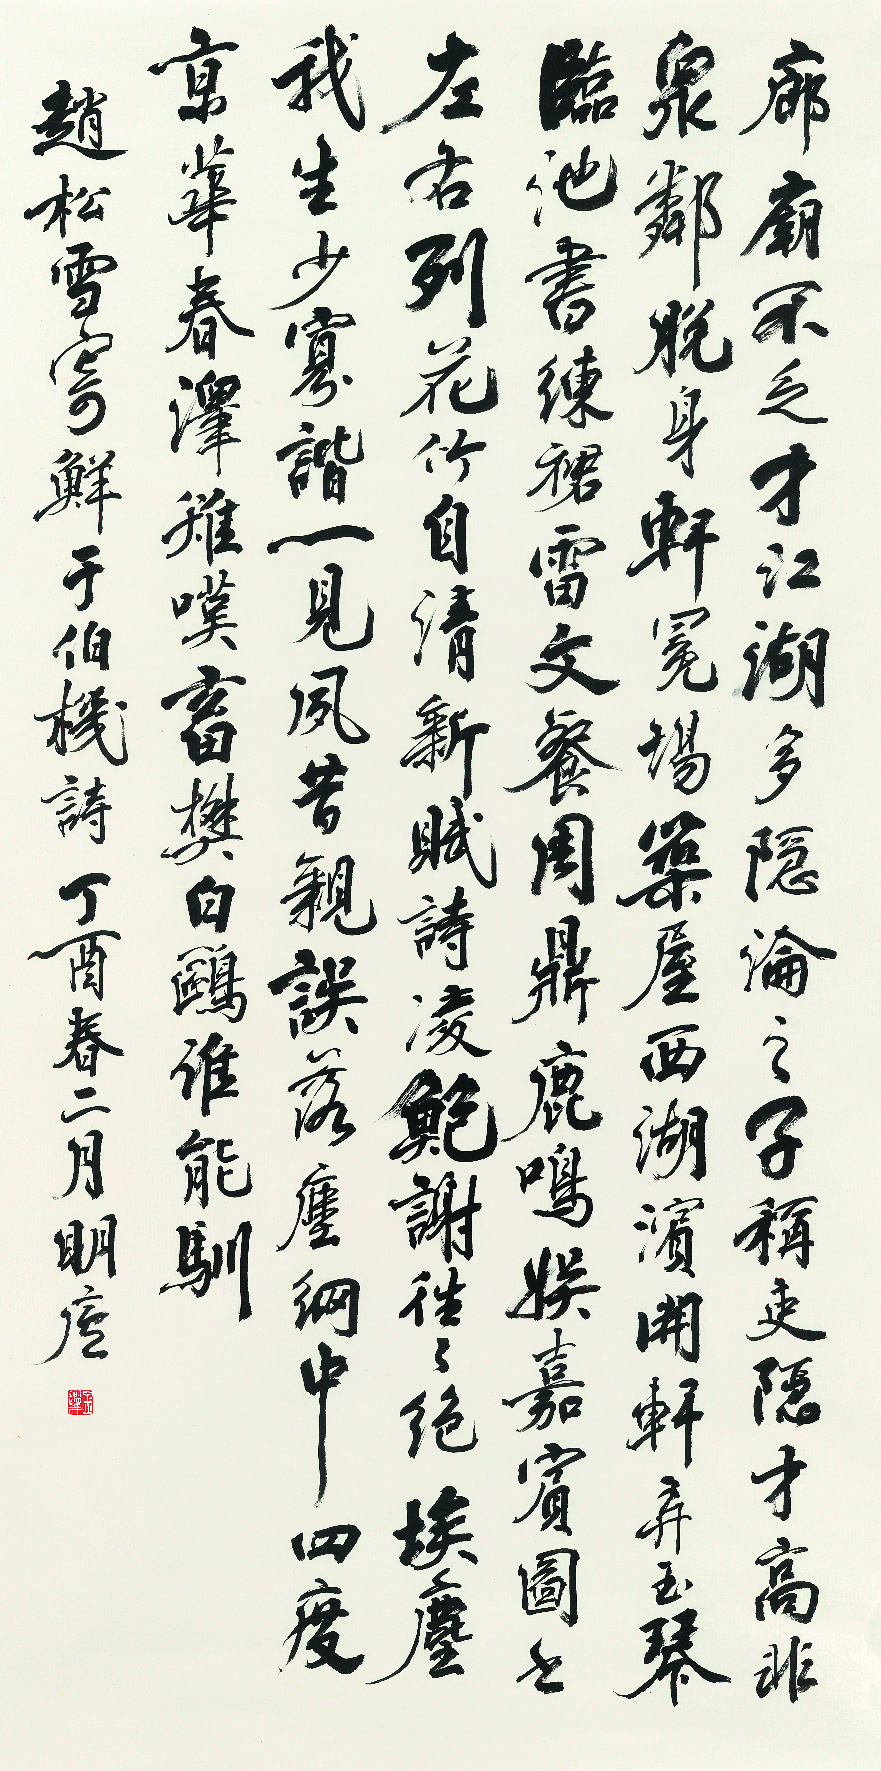 廊廟不乏才江湖多隠淪之子稱吏隠才高非
衆鄰脱身軒冕場築屋西湖濱開軒弄玉琴
臨池書練裙雷文餐周鼎鹿鳴娱嘉賓圖書
左右列花竹自清新賦詩凌鮑謝往々絶埃塵
我生少寡諧一見夙昔親誤落塵網中四度
京華春澤雉嘆畜樊白鷗谁能馴
趙松雪寄鮮于伯機詩丁酉春二月明